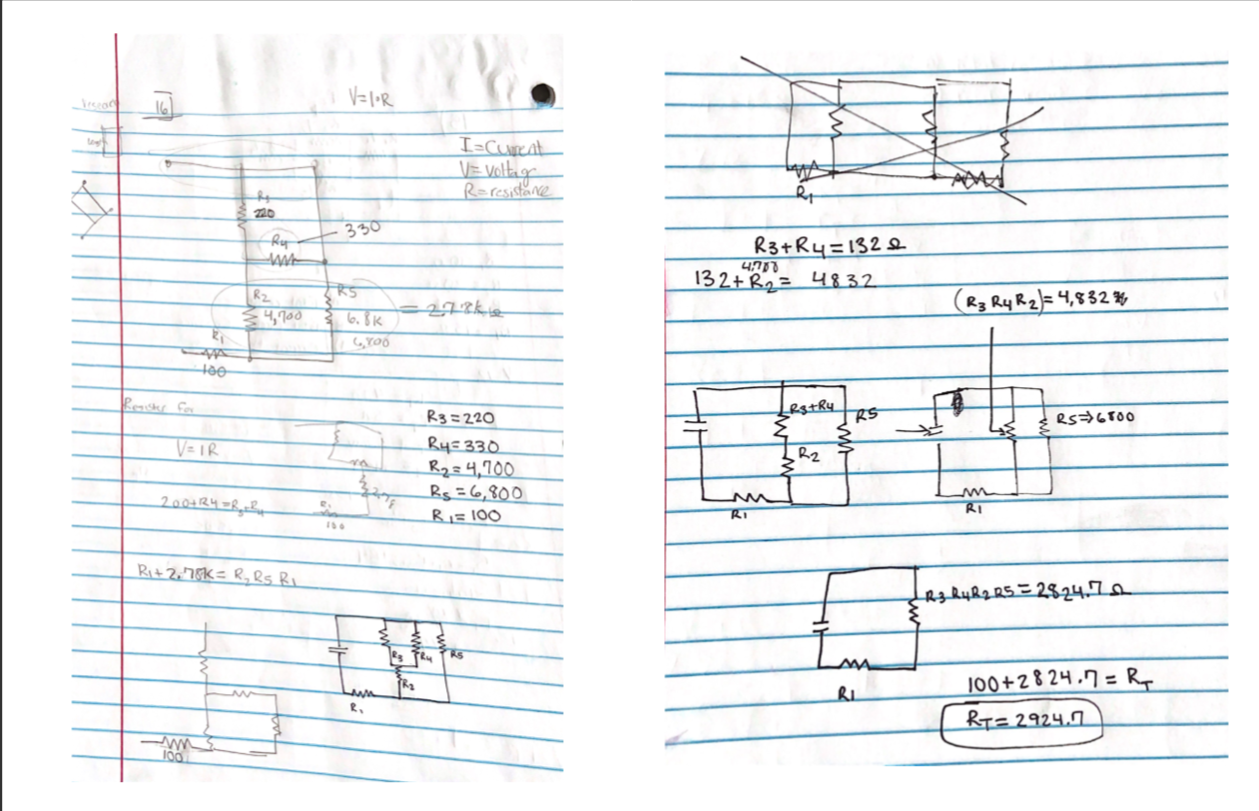 16
V=I·R
I=Current
V=Voltag
R=resistance
R3
220
R4
330
R2
4,700
R5
6.8K
6,800
= 2.78k Ω
R1
100
Resistor For
V=IR
R3=220
R4=330
R2=4,700
R5=6,800
R1=100
200+R4=R3+R4
R1
100
R1+2.78K= R2 R5 R1
R3
R4
R5
R2
R1
100
R1
R3+R4=132Ω
4,700
132+R2= 4832
(R3 R4 R2)=4,832
R3+R4
R5
R2
R1
R5⇒6800
R1
R3 R4 R2 R5=2824.7 Ω
R1
100+2824.7=RT
RT=2924.7